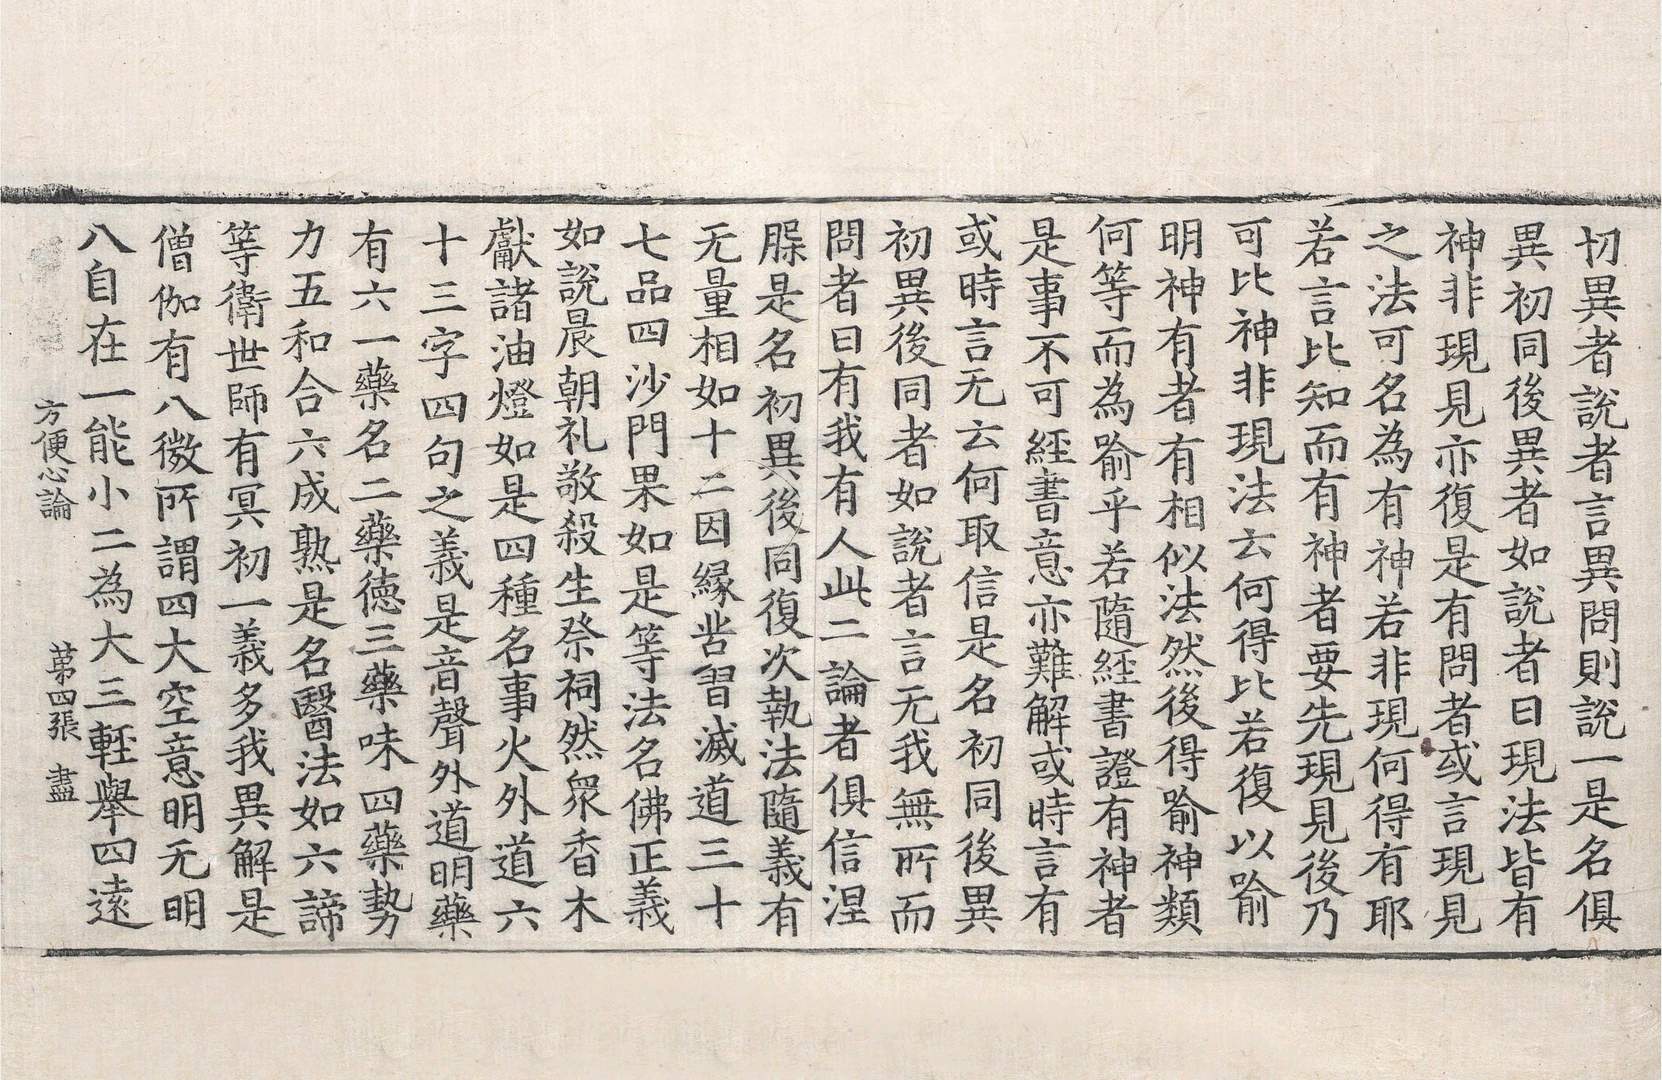 切異者說者言異問則說一是名俱
異初同後異者如說者曰現法皆有
神非現見亦復是有問者或言現見
之法可名為有神若非現何得有耶
若言比知而有神者要先現見後乃
可比神非現法云何得比若復以喻
明神有者有相似法然後得喻神類
何等而為喻乎若隨經書證有神者
是事不可經書意亦難解或時言有
或時言无云何取信是名初同後異
初異後同者如說者言无我無所而
問者曰有我有人此二論者俱信涅
脲是名初異後同復次執法隨義有
无量相如十二因緣苦習滅道三十
七品四沙門果如是等法名佛正義
如說晨朝礼敬殺生祭祠然眾香木
獻諸油燈如是四種名事火外道六
十三字四句之義是音聲外道明藥
有六一藥名二藥德三藥味四藥勢
力五和合六成熟是名醫法如六諦
等衛世師有冥初一義多我異解是
僧伽有八微所謂四大空意明无明
八自在一能小二為大三輕舉四遠
方便心論 第四張 盡